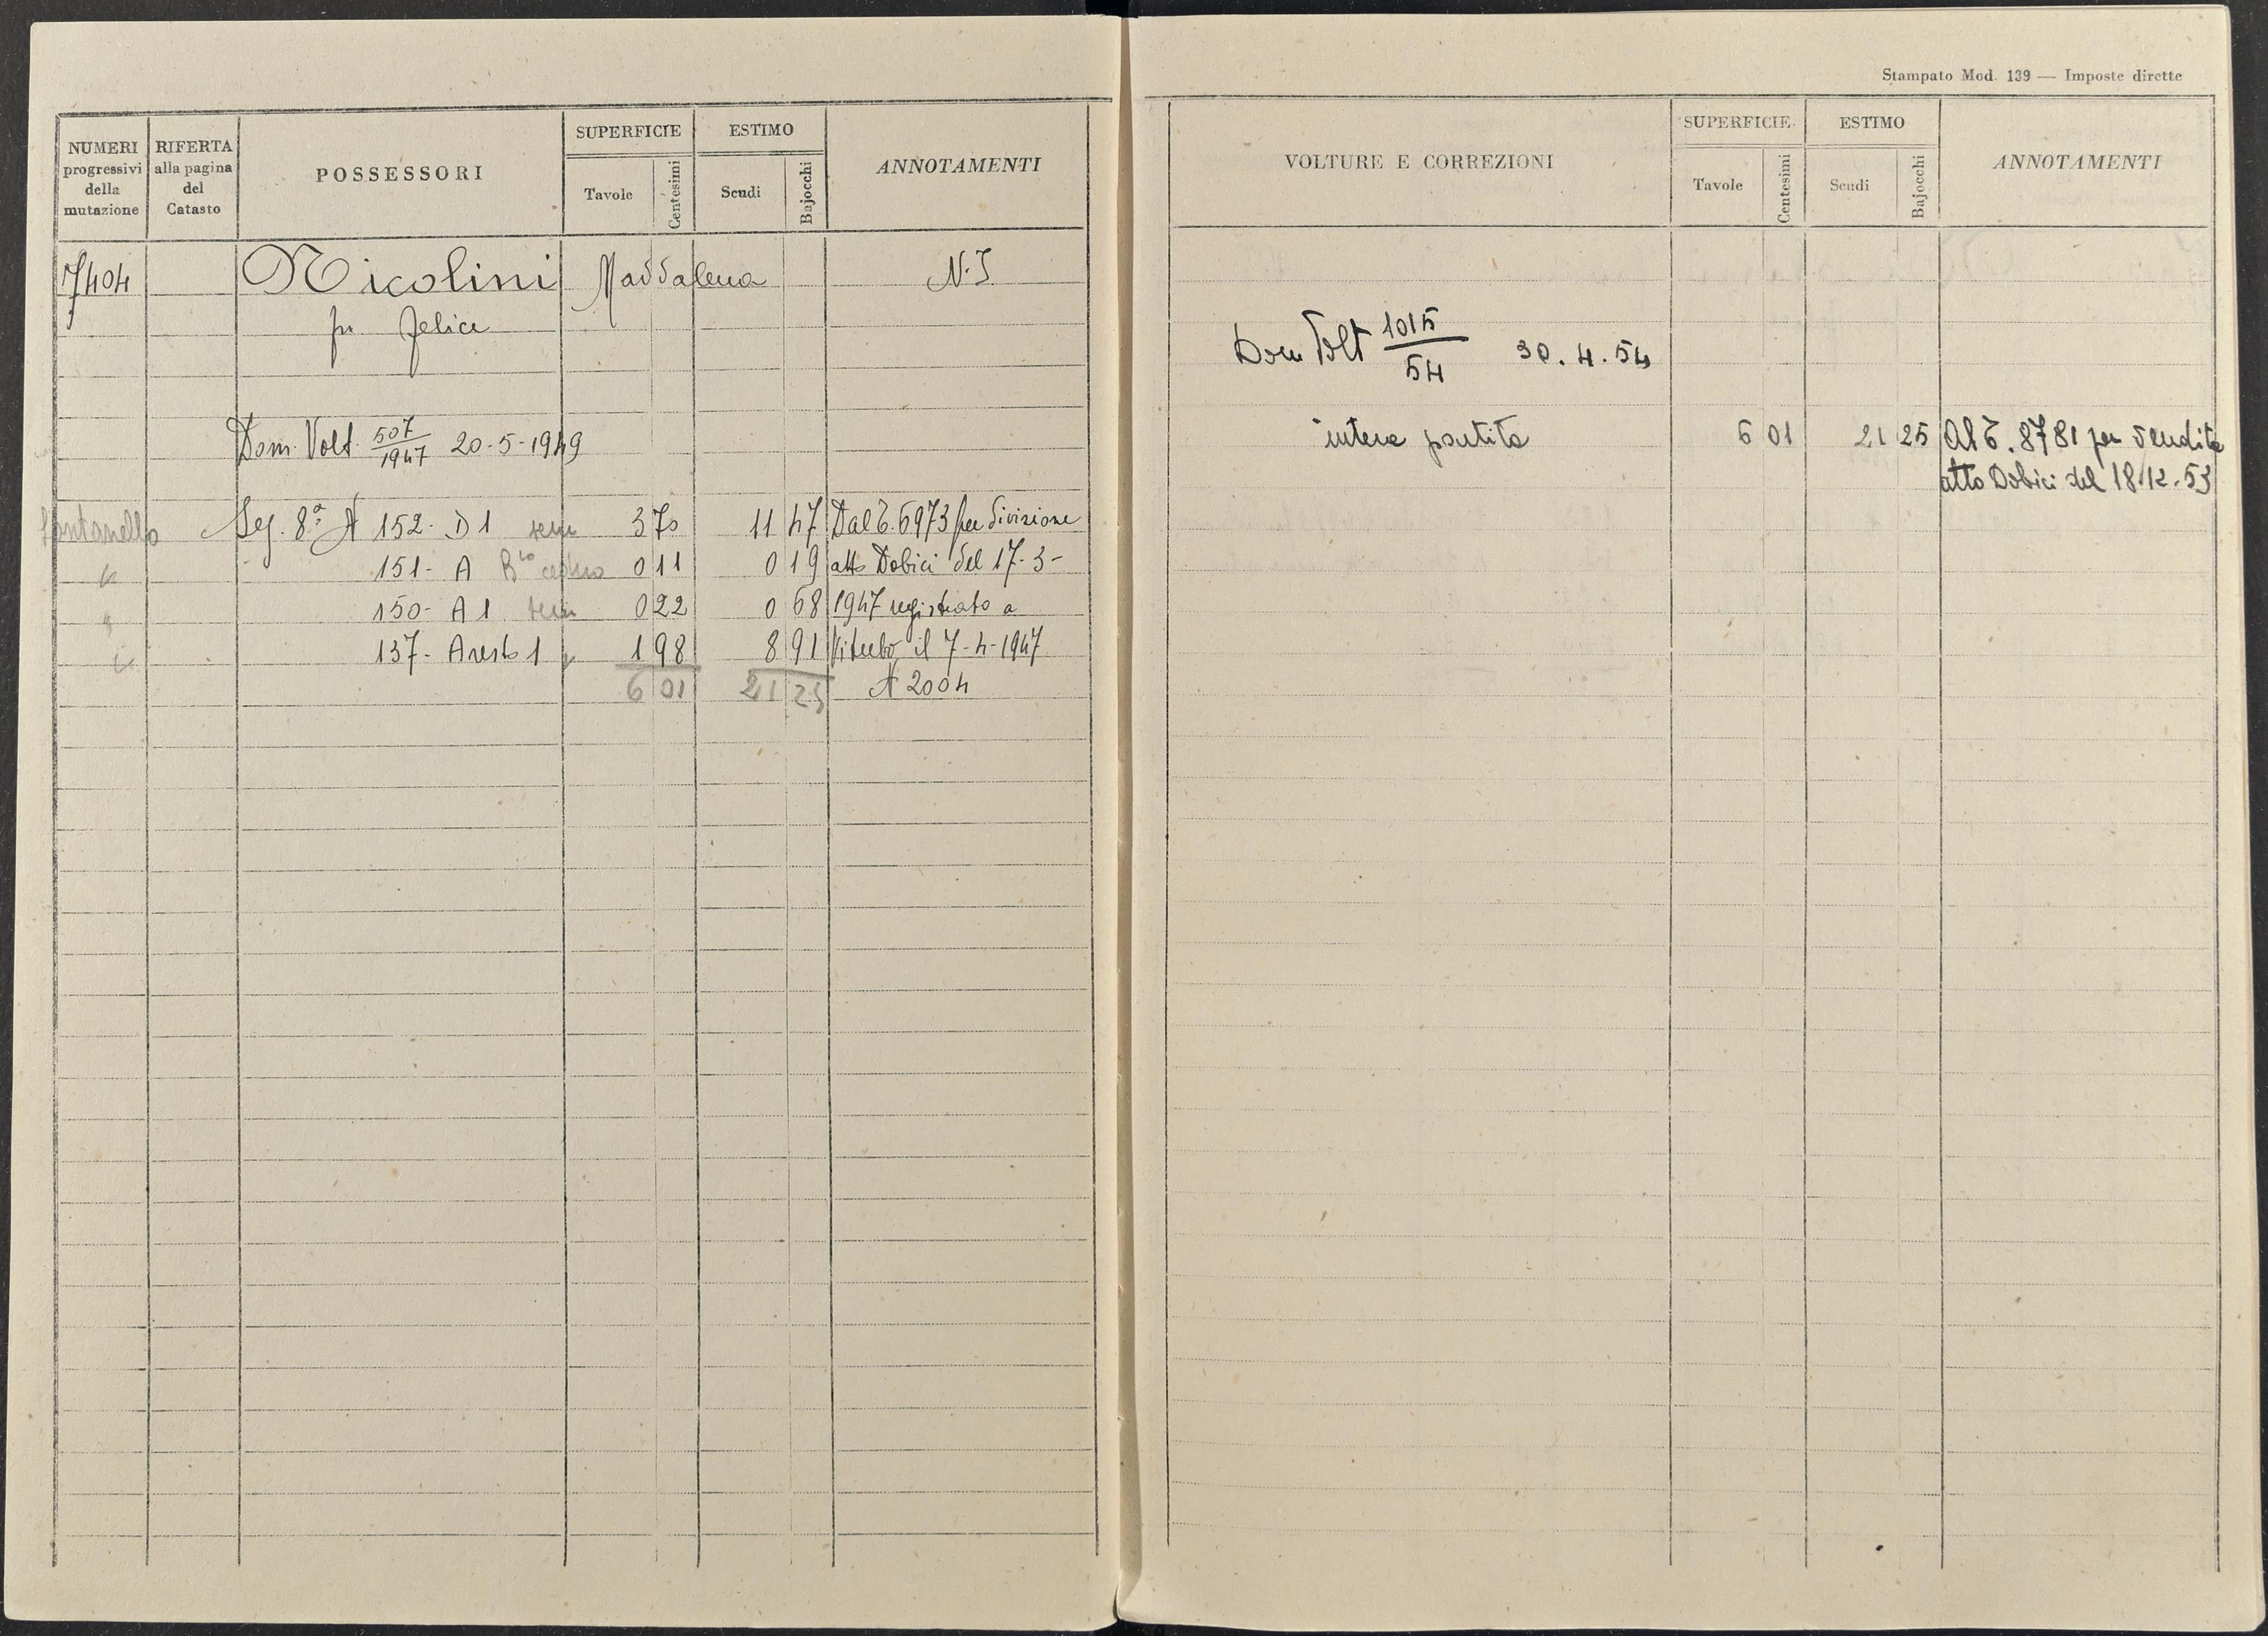 NUMERI progressivi della mutazione
RIFERTA alla pagina del Catasto
POSSESSORI
SUPERFICIE
Tavole
Centesimi
ESTIMO
Scudi
Bajocchi
ANNOTAMENTI
7404 Nicolini Maddalena N.I
fu Felice
Dom. Volt. 507/1947 20-5-1949
Fontanello Seg. 8ª A 152- D1 sem 3 70 11 47 Dal T. 6973 per divisione
151- A B.co ceduo 0 11 0 19 atto Dobici del 17-3-
150- A1 sem 0 22 0 68 1947 registrato a
137- A resto 1 1 98 8 91 Viterbo il 7-4-1947
6 01 21 25 A 2004
Stampato Mod. 139 — Imposte dirette
VOLTURE E CORREZIONI
SUPERFICIE
Tavole
Centesimi
ESTIMO
Scudi
Bajocchi
ANNOTAMENTI
Dom Volt 1015/54 30.4.54
intera partita 6 01 21 25 Al T. 8781 per vendita
atto Dobici del 18.12.53